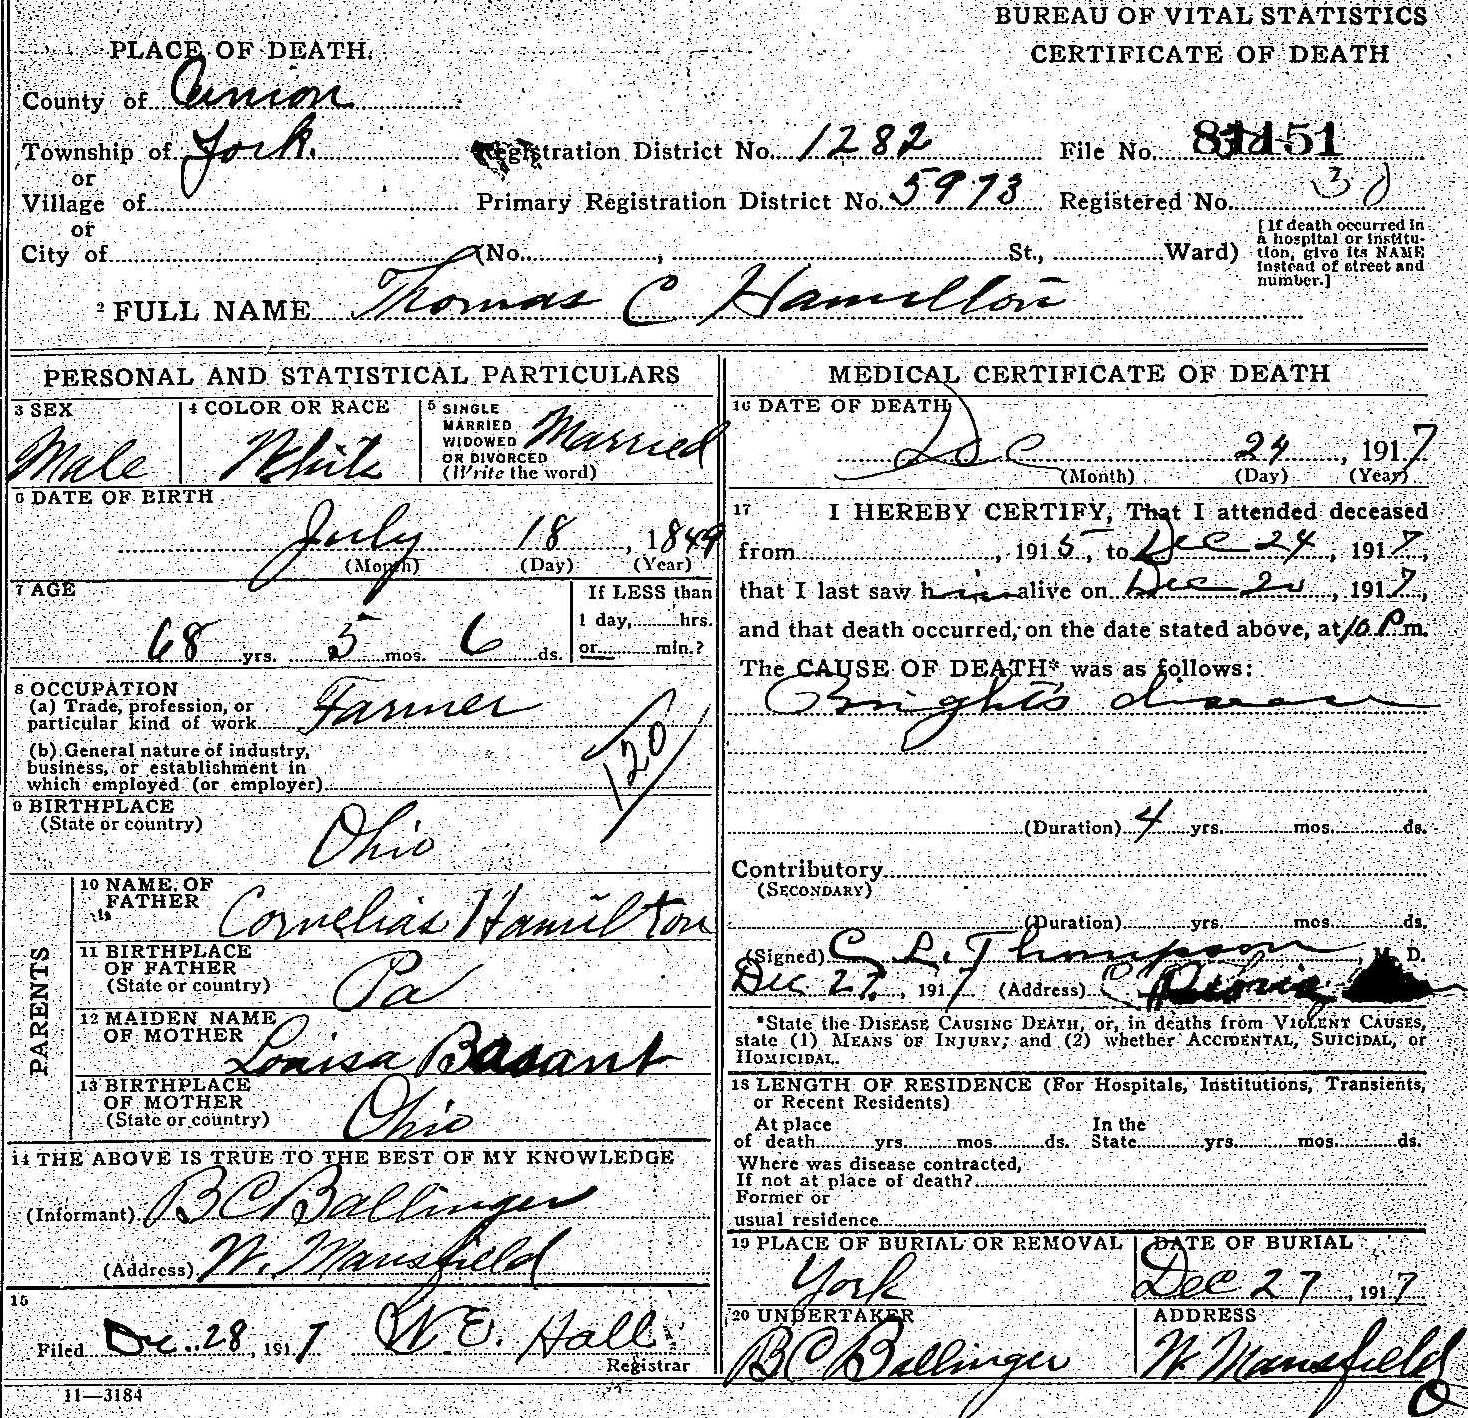 BUREAU OF VITAL STATISTICS
CERTIFICATE OF DEATH
PLACE OF DEATH.
County of Union
Township of York.
Registration District No. 1282
File No.
or
Village of
Primary Registration District No. 5973
Registered No. 30
or
City of (No. , St., Ward)
[If death occurred in
a hospital or institu-
tion, give its NAME
instead of street and
number.]
2 FULL NAME Thomas C Hamilton
PERSONAL AND STATISTICAL PARTICULARS
3 SEX
Male
4 COLOR OR RACE
White
5 SINGLE
MARRIED
WIDOWED
OR DIVORCED
(Write the word)
Married
6 DATE OF BIRTH
July 18, 1849
(Month) (Day) (Year)
7 AGE
68 yrs. 5 mos. 6 ds.
If LESS than
1 day, hrs.
or min.?
8 OCCUPATION
(a) Trade, profession, or
particular kind of work Farmer
(b) General nature of industry,
business, or establishment in
which employed (or employer)
120
9 BIRTHPLACE
(State or country)
Ohio
PARENTS
10 NAME OF
FATHER
Cornelias Hamilton
11 BIRTHPLACE
OF FATHER
(State or country)
Pa
12 MAIDEN NAME
OF MOTHER
Louisa Basant
13 BIRTHPLACE
OF MOTHER
(State or country)
Ohio
14 THE ABOVE IS TRUE TO THE BEST OF MY KNOWLEDGE
(Informant) B C Ballinger
(Address) W. Mansfield
15
Filed Dec. 28, 1917 W. E. Hall
Registrar
11—3184
MEDICAL CERTIFICATE OF DEATH
16 DATE OF DEATH
Dec 24, 1917
(Month) (Day) (Year)
17 I HEREBY CERTIFY, That I attended deceased
from , 1915, to Dec 24, 1917,
that I last saw him alive on Dec 20, 1917,
and that death occurred, on the date stated above, at 10 P.m.
The CAUSE OF DEATH* was as follows:
Bright's disease
(Duration) 4 yrs. mos. ds.
Contributory
(SECONDARY)
(Duration) yrs. mos. ds.
(Signed) C. L. Thompson, M. D.
Dec 27, 1917 (Address)
*State the DISEASE CAUSING DEATH, or, in deaths from VIOLENT CAUSES,
state (1) MEANS OF INJURY; and (2) whether ACCIDENTAL, SUICIDAL, or
HOMICIDAL.
18 LENGTH OF RESIDENCE (For Hospitals, Institutions, Transients,
or Recent Residents)
At place
of death yrs. mos. ds.
In the
State yrs. mos. ds.
Where was disease contracted,
If not at place of death?
Former or
usual residence
19 PLACE OF BURIAL OR REMOVAL
York
DATE OF BURIAL
Dec 27, 1917
20 UNDERTAKER
B C Ballinger
ADDRESS
W. Mansfield
O